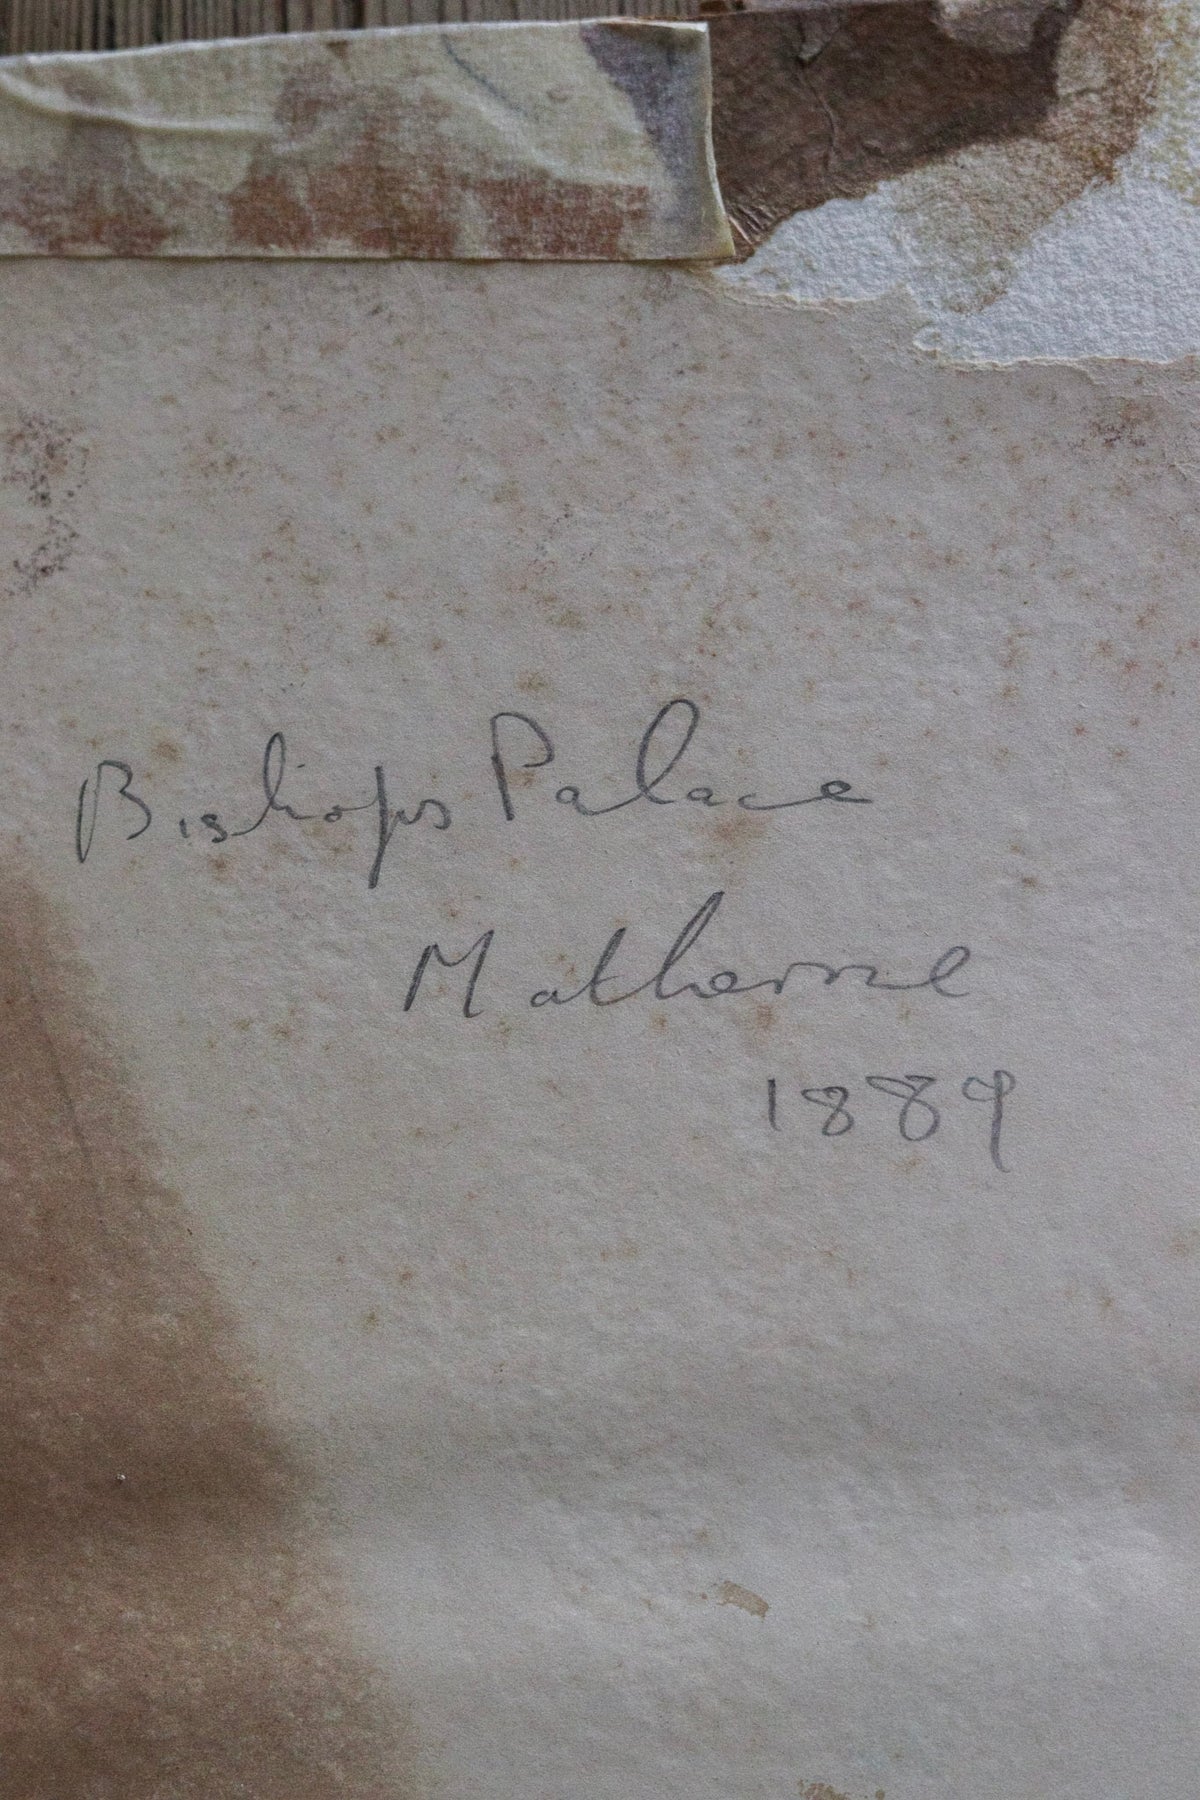 Bishops Palace
Matherne
1889